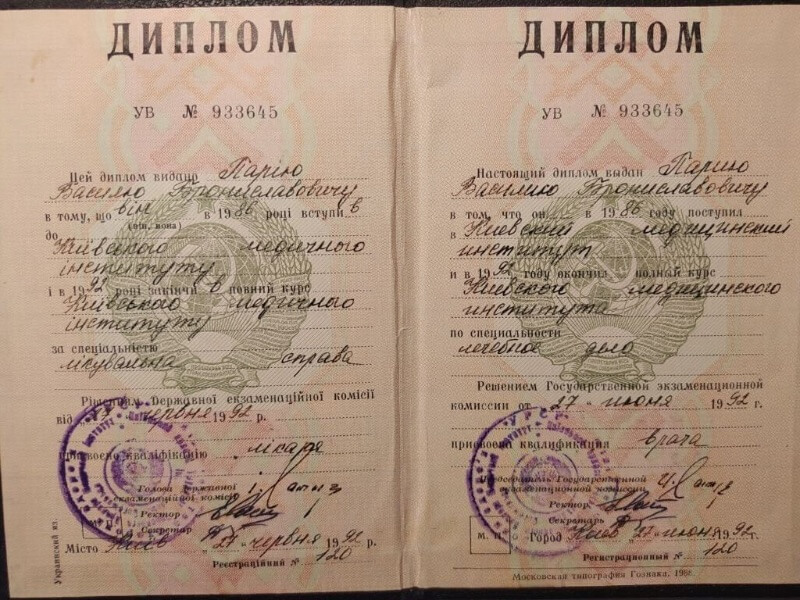 ДИПЛОМ
УВ № 933645
Цей диплом видано Парію
Василю Броніславовичу
в тому, що він в 1986 році вступив
(він, вона)
до Київського медичного
інституту
і в 1992 році закінчив повний курс
Київського медичного
інституту
за спеціальністю
лікувальна справа
Рішенням Державної екзаменаційної комісії
від 27 червня 1992 р.
присвоєно кваліфікацію
лікаря
Голова Державної
екзаменаційної комісії
Ректор
Секретар
М. П.
Місто Київ 27 червня 1992 р.
Реєстраційний № 120
Украинский яз.
ДИПЛОМ
УВ № 933645
Настоящий диплом выдан Парию
Василию Брониславовичу
в том, что он в 1986 году поступил
в Киевский медицинский
институт
и в 1992 году окончил полный курс
Киевского медицинского
института
по специальности
лечебное дело
Решением Государственной экзаменационной
комиссии от 27 июня 1992 г.
присвоена квалификация
врача
Председатель Государственной
экзаменационной комиссии
Ректор
Секретарь
М. П.
Город Киев 27 июня 1992 г.
Регистрационный № 120
Московская типография Гознака. 1988.